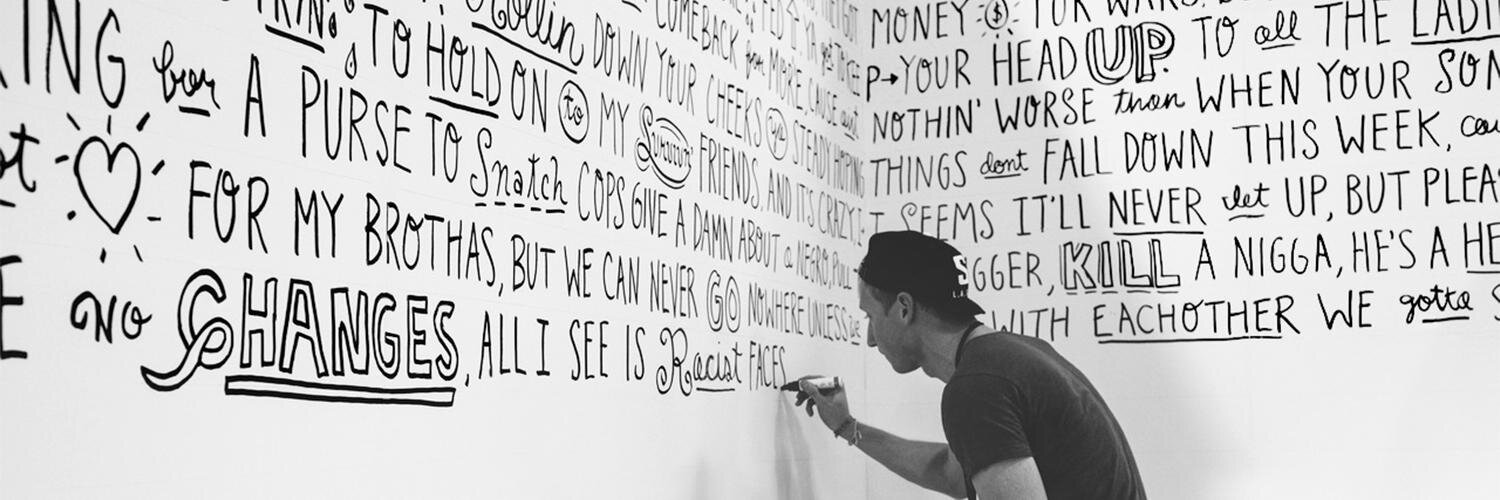 COMEBACK for MORE CAUSE
Rollin DOWN YOUR CHEEKS ya STEADY HOPING
TO HOLD ON to MY Survivin' FRIENDS, AND IT'S CRAZY, I
A PURSE TO Snatch COPS GIVE A DAMN ABOUT a NEGRO, PULL
FOR MY BROTHAS, BUT WE CAN NEVER GO NOWHERE UNLESS we
NO CHANGES, ALL I SEE IS Racist FACES
MONEY $ FOR WARS,
YOUR HEAD UP. TO all THE LADI
NOTHIN' WORSE than WHEN YOUR SON
THINGS dont FALL DOWN THIS WEEK, cau
T SEEMS IT'LL NEVER let UP, BUT PLEA
GGER, KILL A NIGGA, HE'S A HE
WITH EACHOTHER WE gotta S